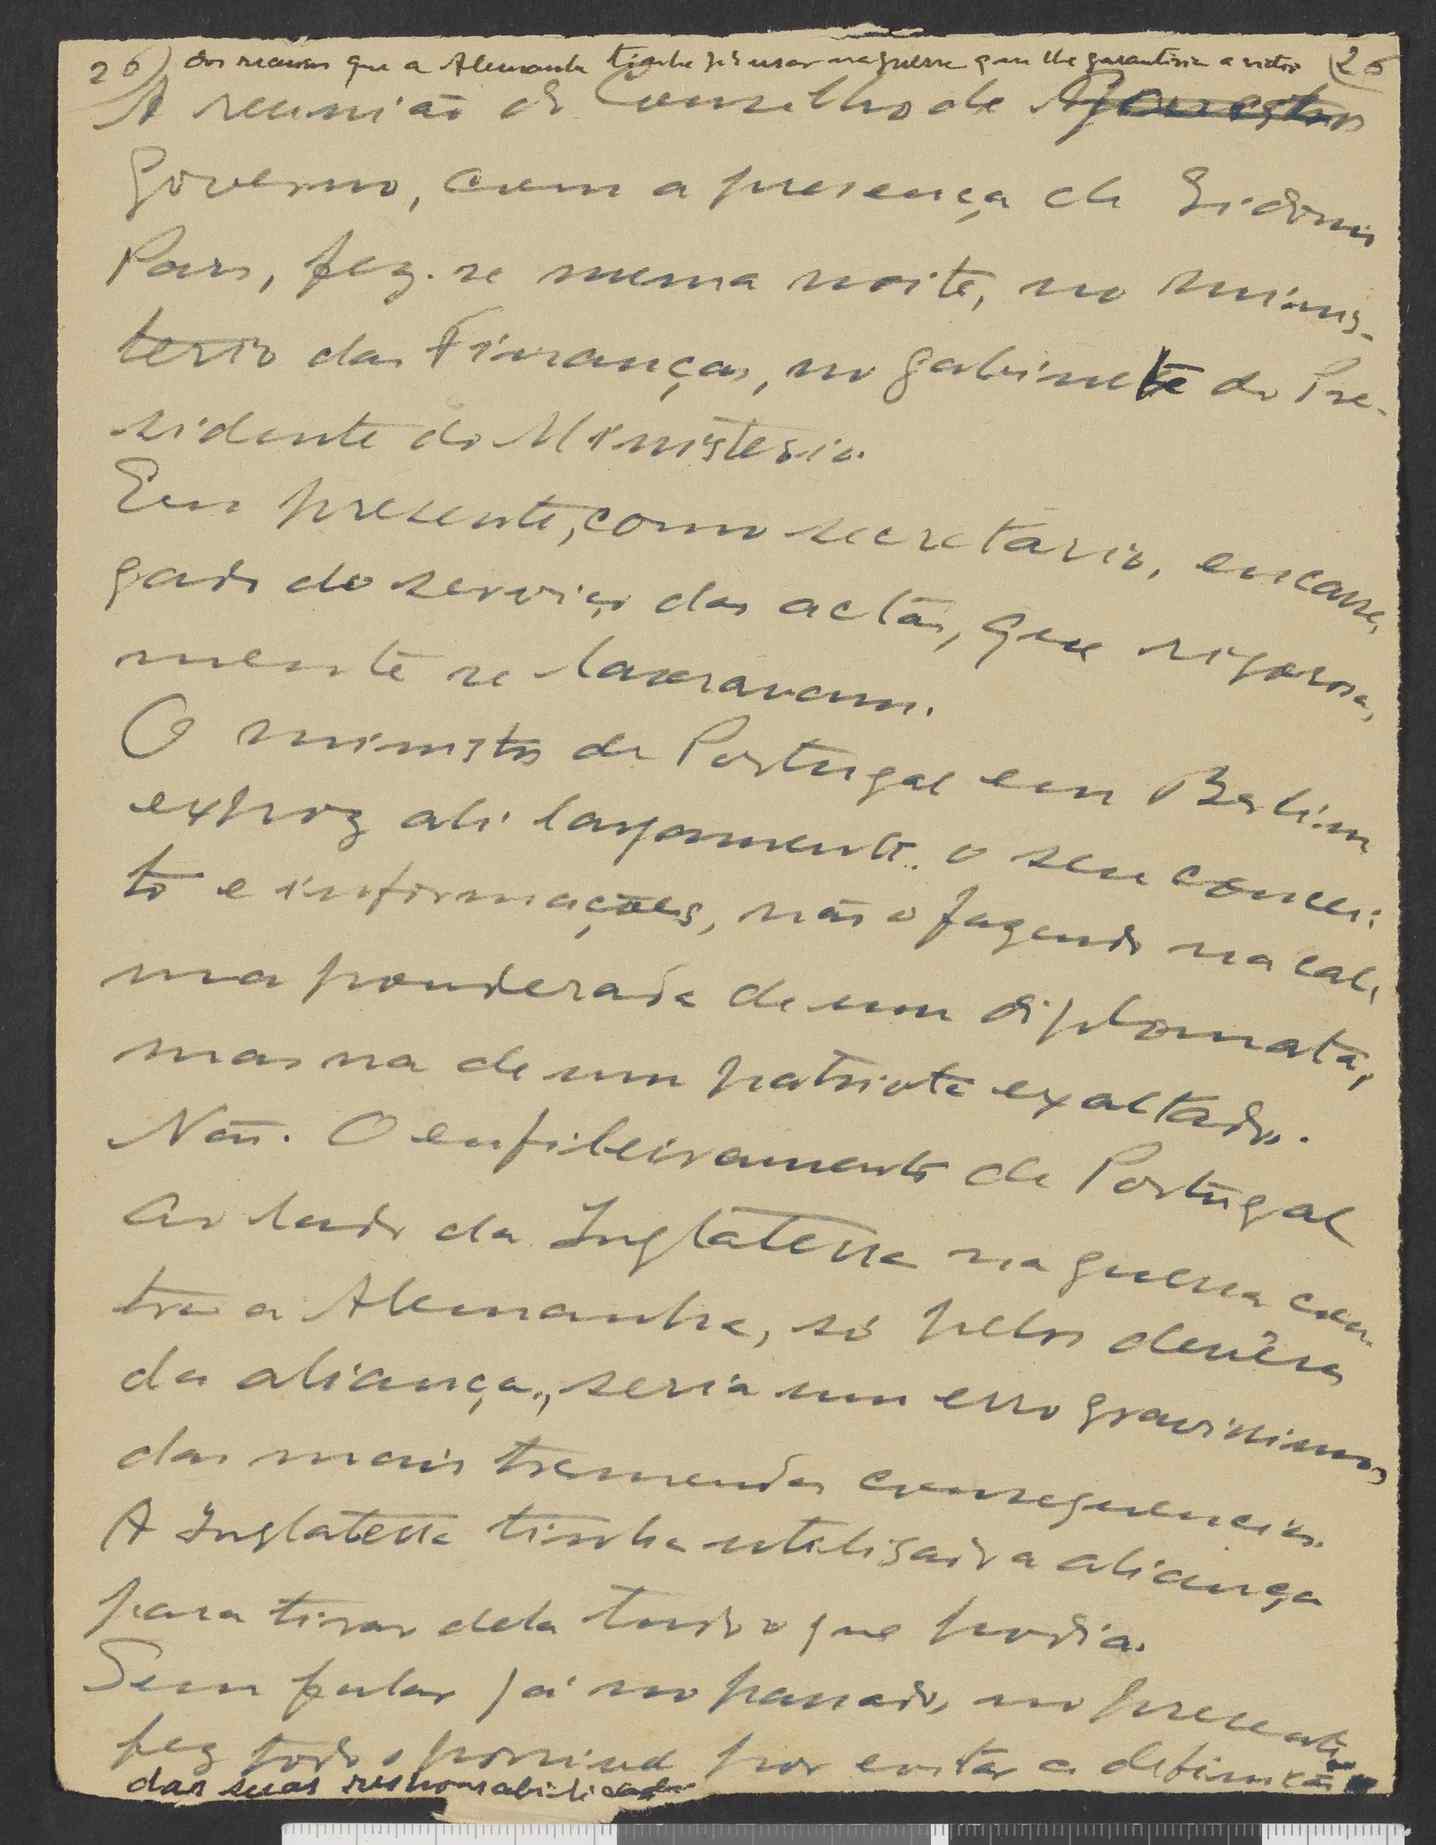 26) dos meios que a Alemanha tinha para usar na guerra que lhe garantiria a victoria (26
A reunião do Conselho de
Governo, com a presença de Sidonio
Pais, fez-se nessa noite, no minis-
terio das Finanças, no gabinete do Pre-
sidente do Ministerio.
Eu presente, como secretário, encarre-
gado do serviço das actas, que rigorosa-
mente se lavravam.
O ministro de Portugal em Berlim
expoz ali largamente o seu concei-
to e informações, não o fazendo na cal-
ma ponderada de um diplomata,
mas na de um patriota exaltado.
Não. O enfileiramento de Portugal
ao lado da Inglaterra na guerra con-
tra a Alemanha, só pelos deveres
da aliança, seria um erro gravissimo,
das mais tremendas consequencias.
A Inglaterra tinha utilisado a aliança
para tirar dela tudo o que podia.
Sem falar já no passado, no presente
fez todo o possivel por evitar a definição
das suas responsabilidades